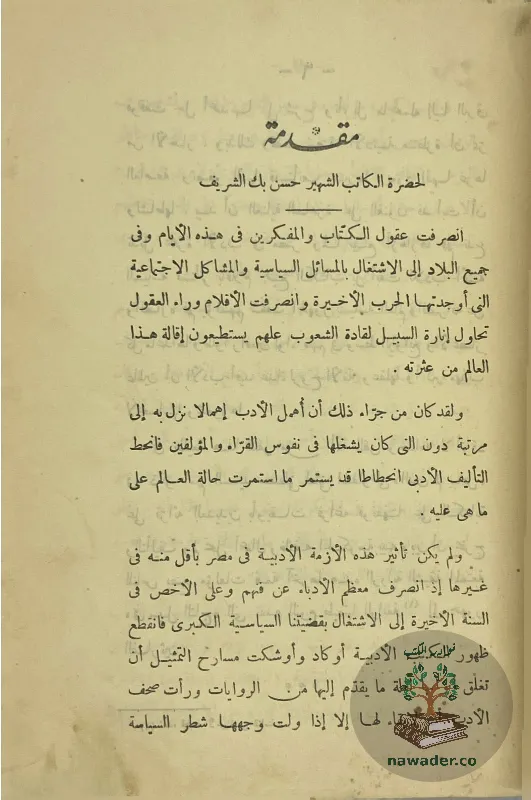 مقدمة
لحضرة الكاتب الشهير حسن بك الشريف
انصرفت عقول الكتّاب والمفكرين فى هذه الأيام وفى
جميع البلاد إلى الاشتغال بالمسائل السياسية والمشاكل الاجتماعية
التى أوجدتها الحرب الأخيرة وانصرفت الأقلام وراء العقول
تحاول إنارة السبيل لقادة الشعوب علهم يستطيعون إقالة هذا
العالم من عثرته .
ولقد كان من جرّاء ذلك أن أُهمل الأدب إهمالا نزل به إلى
مرتبة دون التى كان يشغلها فى نفوس القرّاء والمؤلفين فانحط
التأليف الأدبى انحطاطا قد يستمر ما استمرت حالة العالم على
ما هى عليه .
ولم يكن تأثير هذه الأزمة الأدبية فى مصر بأقل منه فى
غيرها إذ انصرف معظم الأدباء عن فنهم وعلى الأخص فى
السنة الأخيرة إلى الاشتغال بقضيتنا السياسية الكبرى فانقطع
ظهور الكتب الأدبية أو كاد وأوشكت مسارح التمثيل أن
تغلق لقلة ما يقدّم إليها من الروايات ورأت صحف
الأدب لها إلا إذا ولت وجهها شطر السياسة
نوادر الكتب
nawader.co